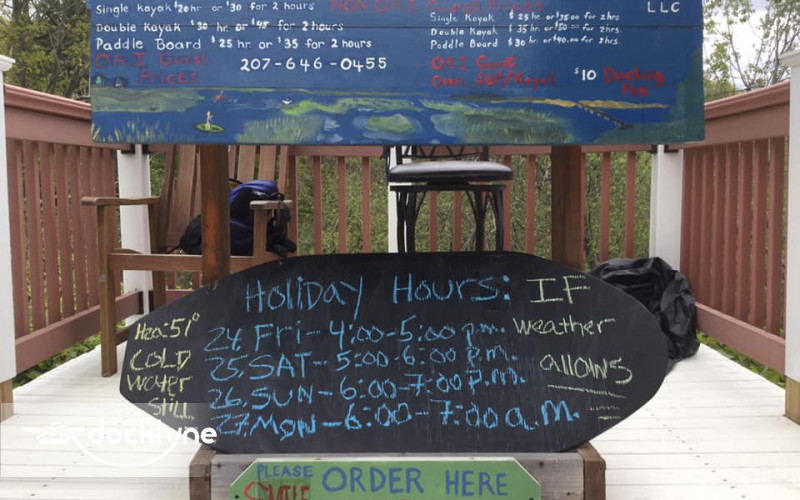 Single Kayak $20 hr or $30 for 2 hours
Double Kayak $30 hr or $45 for 2 hours
Paddle Board $25 hr or $35 for 2 hours
O.R.I Guest
Prices
207-646-0455
NON O.R.I Guest Prices
Single Kayak $25 hr. or $35.00 for 2 hrs.
Double Kayak $35 hr. or $50.00 for 2 hrs.
Paddle Board $30 hr. or $40.00 for 2 hrs.
O.R.I Guest
$10 Docking
Fee
LLC
Holiday Hours: IF
weather
allows
H20:51°
COLD
water
still
24. Fri-4:00-5:00 p.m.
25. SAT-5:00-6:00 p.m.
26. SUN-6:00-7:00 P.m.
27. Mon-6:00-7:00 a.m.
docklyne
PLEASE
SMILE
ORDER HERE